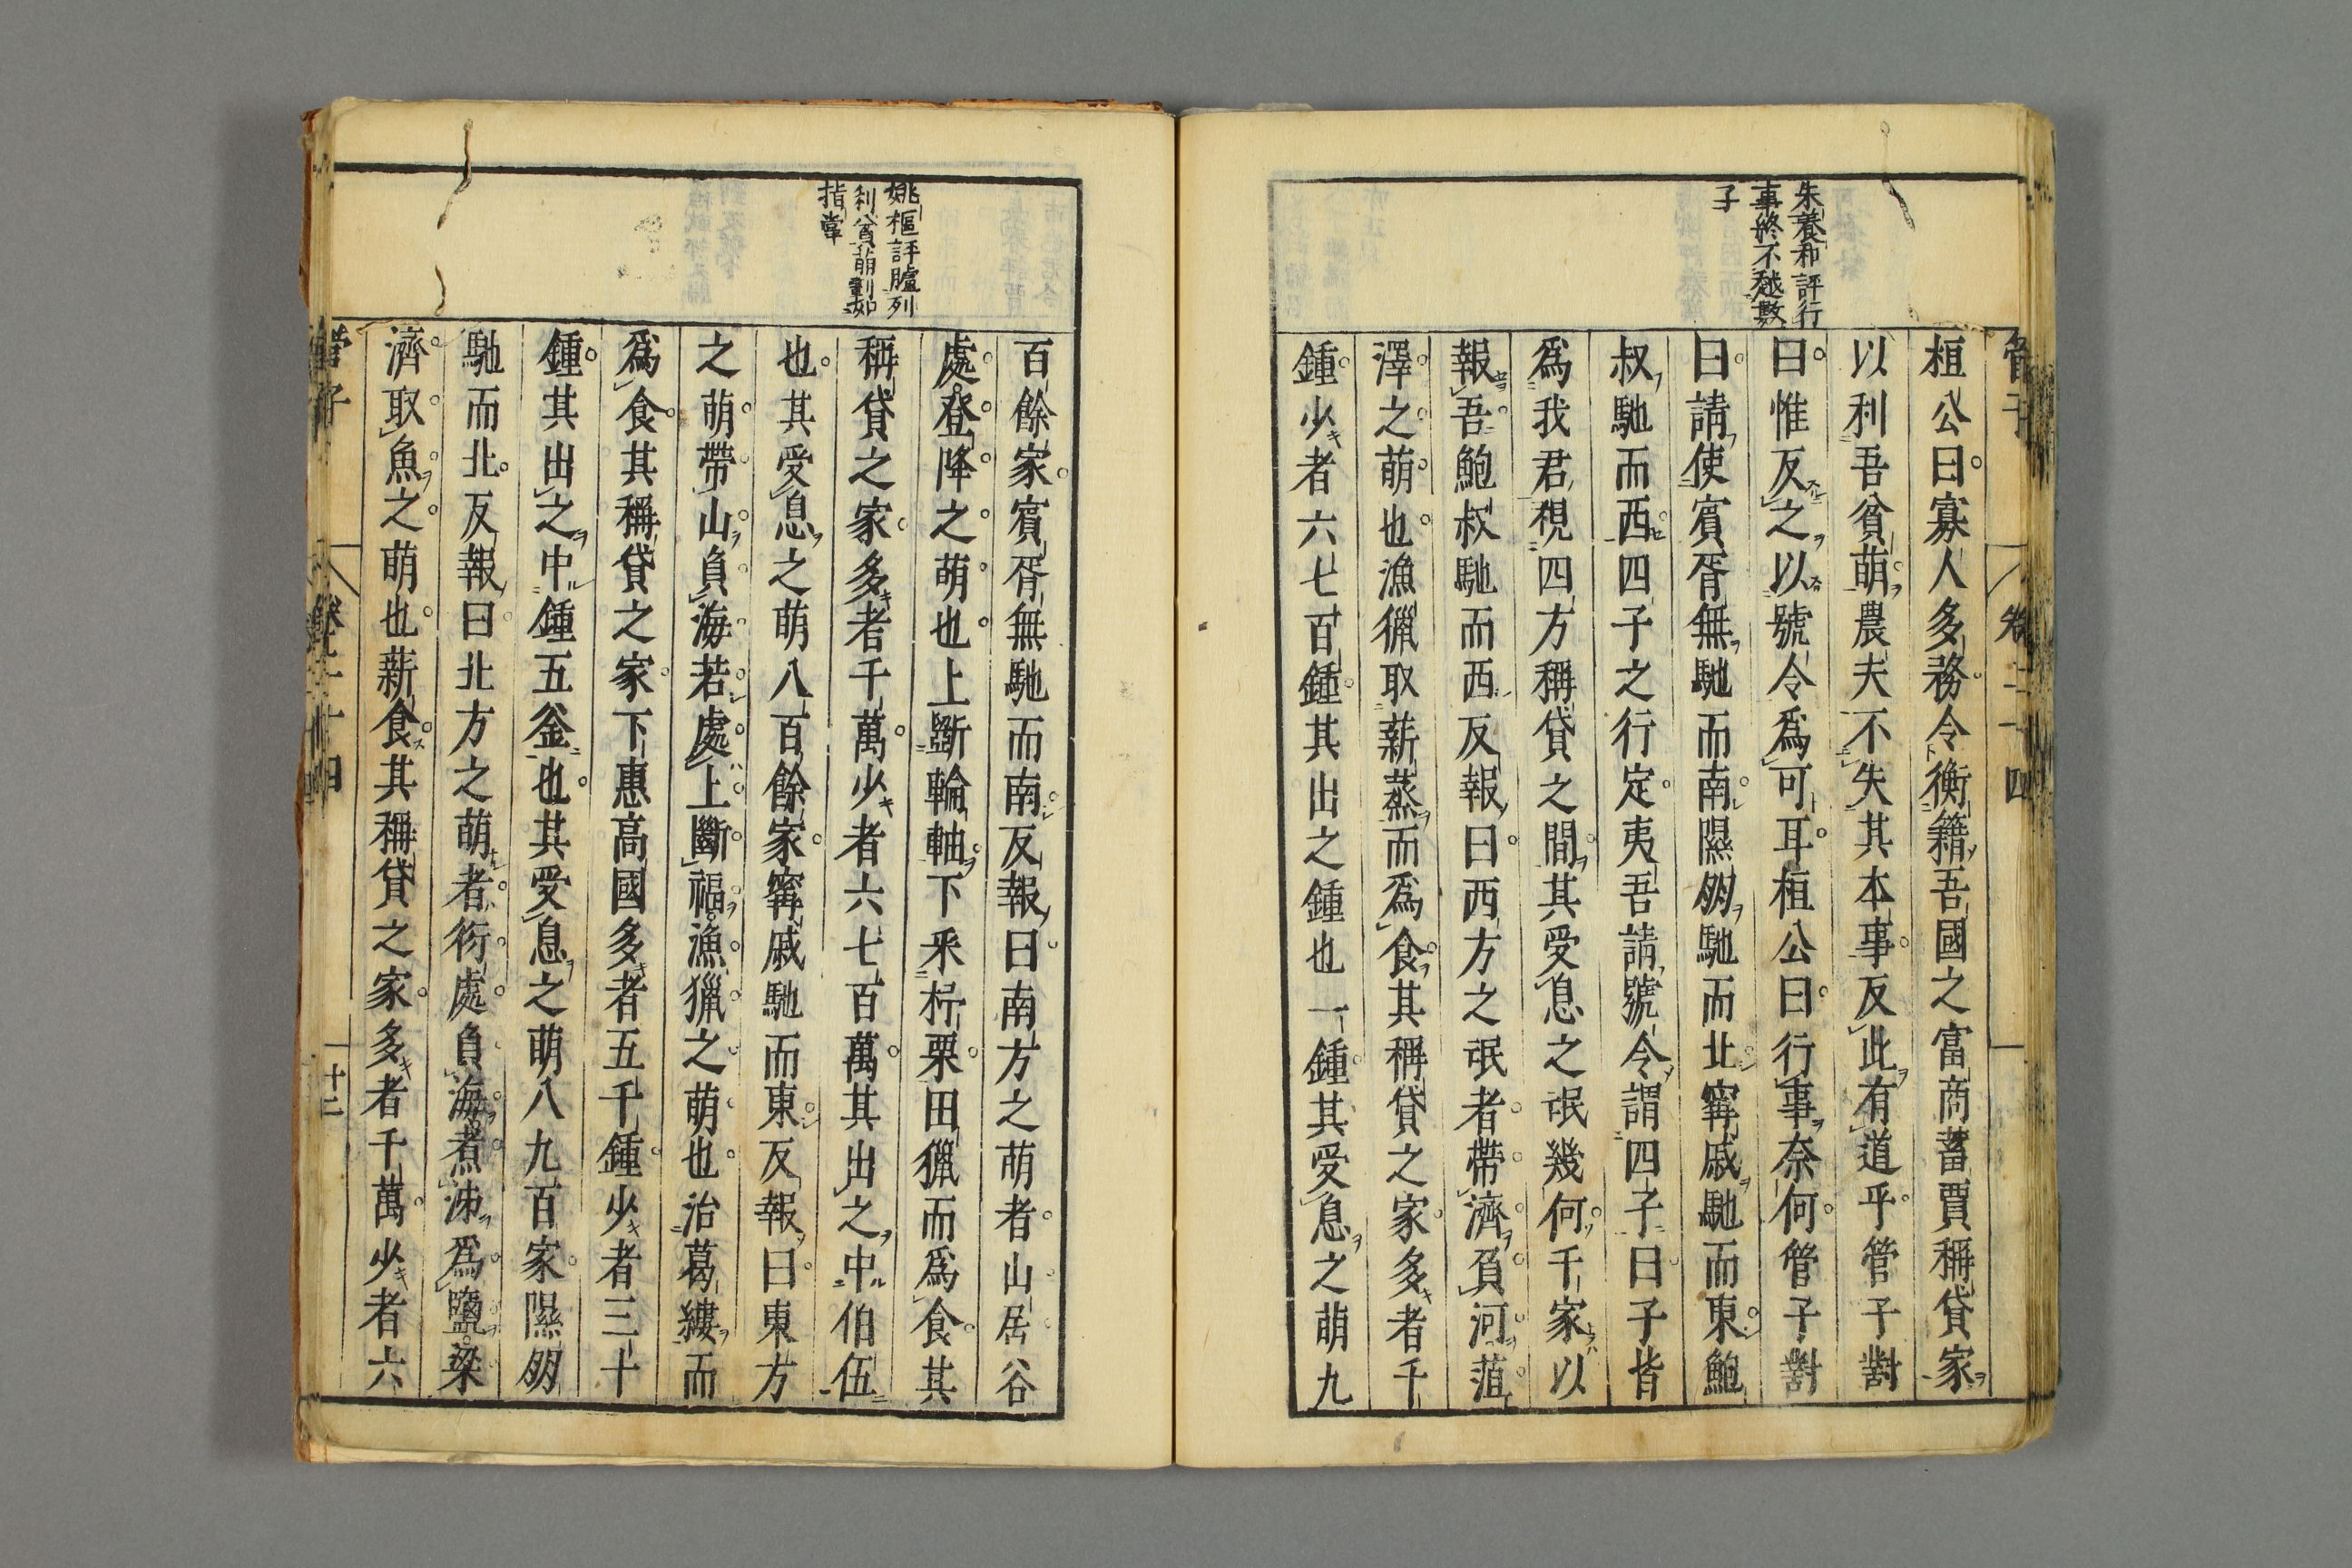 管子
卷二十四
朱養和評行
事終不越數
子
桓公曰寡人多務令衡籍吾國之富商蓄賈稱貸家
以利吾貧萌農夫不失其本事反此有道乎管子對
曰惟反之以號令爲可耳桓公曰行事奈何管子對
曰請使賓胥無馳而南隰朋馳而北甯戚馳而東鮑
叔馳而西四子之行定夷吾請號令謂四子曰子皆
爲我君視四方稱貸之間其受息之氓幾何千家以
報吾鮑叔馳而西反報曰西方之氓者帶濟負河菹
澤之萌也漁獵取薪蒸而爲食其稱貸之家多者千
鍾少者六七百鍾其出之鍾也一鍾其受息之萌九
姚樞評臚列
利貧萌劃如
指掌
百餘家賓胥無馳而南反報曰南方之萌者山居谷
處登降之萌也上斵輪軸下釆杼栗田獵而爲食其
稱貸之家多者千萬少者六七百萬其出之中伯伍
也其受息之萌八百餘家甯戚馳而東反報曰東方
之萌帶山負海若處上斷福漁獵之萌也治葛縷而
爲食其稱貸之家下惠高國多者五千鍾少者三十
鍾其出之中鍾五釜也其受息之萌八九百家隰朋
馳而北反報曰北方之萌者衍處負海煮沸爲鹽梁
濟取魚之萌也薪食其稱貸之家多者千萬少者六
管子
卷二十四
十二